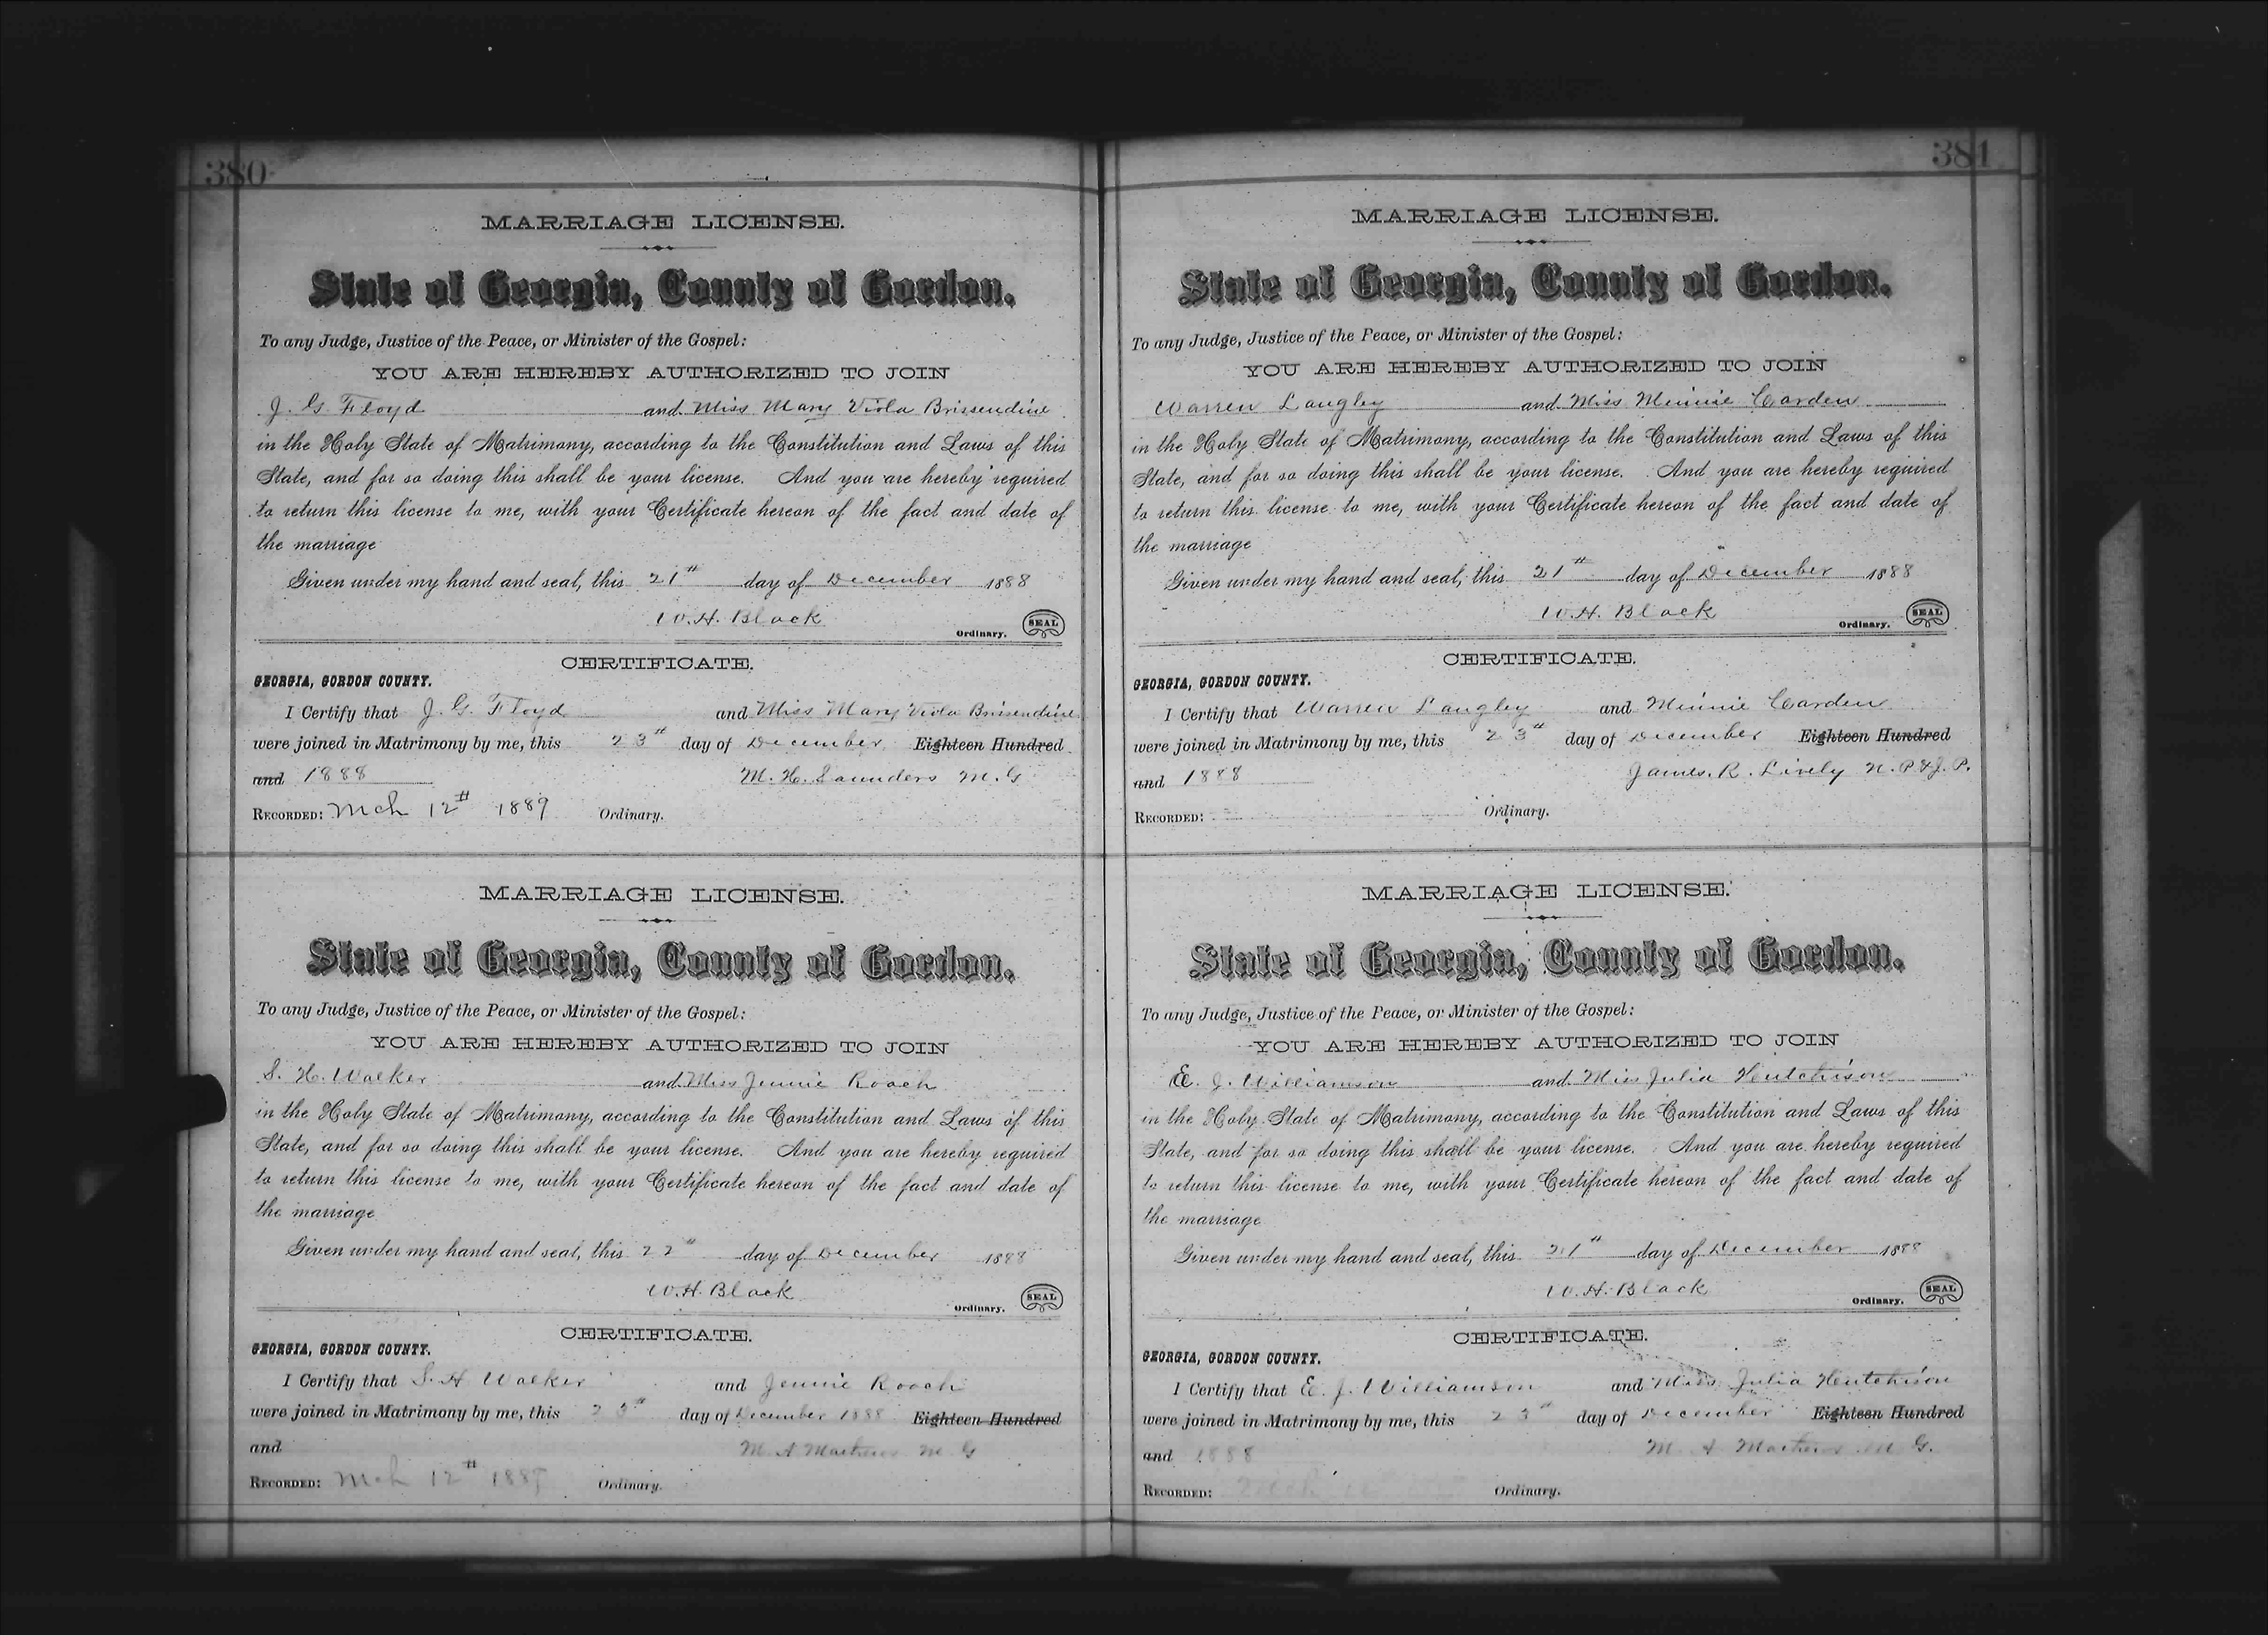 380
MARRIAGE LICENSE.
State of Georgia, County of Gordon.
To any Judge, Justice of the Peace, or Minister of the Gospel:
YOU ARE HEREBY AUTHORIZED TO JOIN
J. G. Floyd and Miss Mary Viola Brissendine
in the Holy State of Matrimony, according to the Constitution and Laws of this
State, and for so doing this shall be your license. And you are hereby required
to return this license to me, with your Certificate hereon of the fact and date of
the marriage
Given under my hand and seal, this 21st day of December 1888
W. H. Black
Ordinary. SEAL
CERTIFICATE.
GEORGIA, GORDON COUNTY.
I Certify that J. G. Floyd and Miss Mary Viola Brissendine
were joined in Matrimony by me, this 23rd day of December Eighteen Hundred
and 1888 M. H. Saunders M. G
RECORDED: Mch 12th 1889 Ordinary.
MARRIAGE LICENSE.
State of Georgia, County of Gordon.
To any Judge, Justice of the Peace, or Minister of the Gospel:
YOU ARE HEREBY AUTHORIZED TO JOIN
S. H. Walker and Miss Jennie Roach
in the Holy State of Matrimony, according to the Constitution and Laws of this
State, and for so doing this shall be your license. And you are hereby required
to return this license to me, with your Certificate hereon of the fact and date of
the marriage
Given under my hand and seal, this 22nd day of December 1888
W. H. Black
Ordinary. SEAL
CERTIFICATE.
GEORGIA, GORDON COUNTY.
I Certify that S. H Walker and Jennie Roach
were joined in Matrimony by me, this 23rd day of December 1888 Eighteen Hundred
and M. A Mathews M. G
RECORDED: Mch 12th 1889 Ordinary.
381
MARRIAGE LICENSE.
State of Georgia, County of Gordon.
To any Judge, Justice of the Peace, or Minister of the Gospel:
YOU ARE HEREBY AUTHORIZED TO JOIN
Warren Langley and Miss Minnie Carden
in the Holy State of Matrimony, according to the Constitution and Laws of this
State, and for so doing this shall be your license. And you are hereby required
to return this license to me, with your Certificate hereon of the fact and date of
the marriage
Given under my hand and seal, this 21st day of December 1888
W. H. Black
Ordinary. SEAL
CERTIFICATE.
GEORGIA, GORDON COUNTY.
I Certify that Warren Langley and Minnie Carden
were joined in Matrimony by me, this 23rd day of December Eighteen Hundred
and 1888 James. R. Lively N. P. & J. P.
RECORDED: Ordinary.
MARRIAGE LICENSE.
State of Georgia, County of Gordon.
To any Judge, Justice of the Peace, or Minister of the Gospel:
YOU ARE HEREBY AUTHORIZED TO JOIN
E. J. Williamson and Miss Julia Hutchison
in the Holy State of Matrimony, according to the Constitution and Laws of this
State, and for so doing this shall be your license. And you are hereby required
to return this license to me, with your Certificate hereon of the fact and date of
the marriage
Given under my hand and seal, this 21st day of December 1888
W. H. Black
Ordinary. SEAL
CERTIFICATE.
GEORGIA, GORDON COUNTY.
I Certify that E. J. Williamson and Miss Julia Hutchison
were joined in Matrimony by me, this 23rd day of December Eighteen Hundred
and 1888 M. A Mathews M. G.
RECORDED: Ordinary.